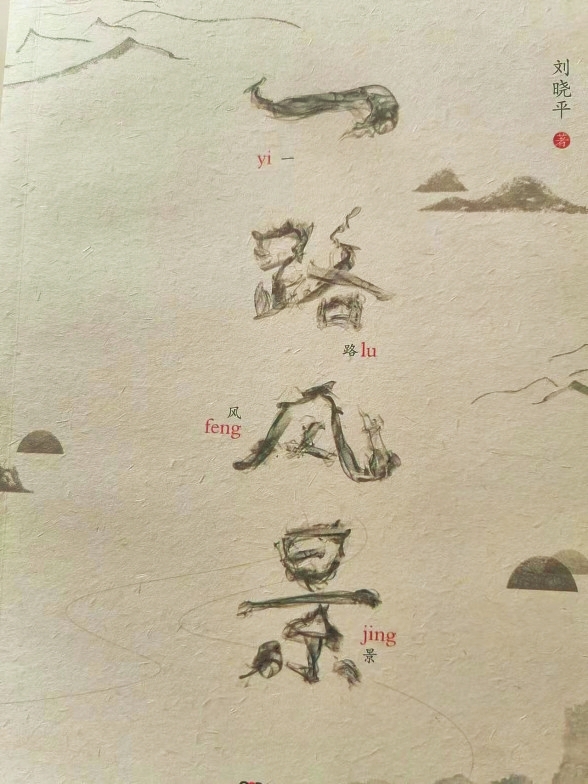 刘晓平 著
一
yi 一
路
路 lu
风
风
feng
景
jing
景